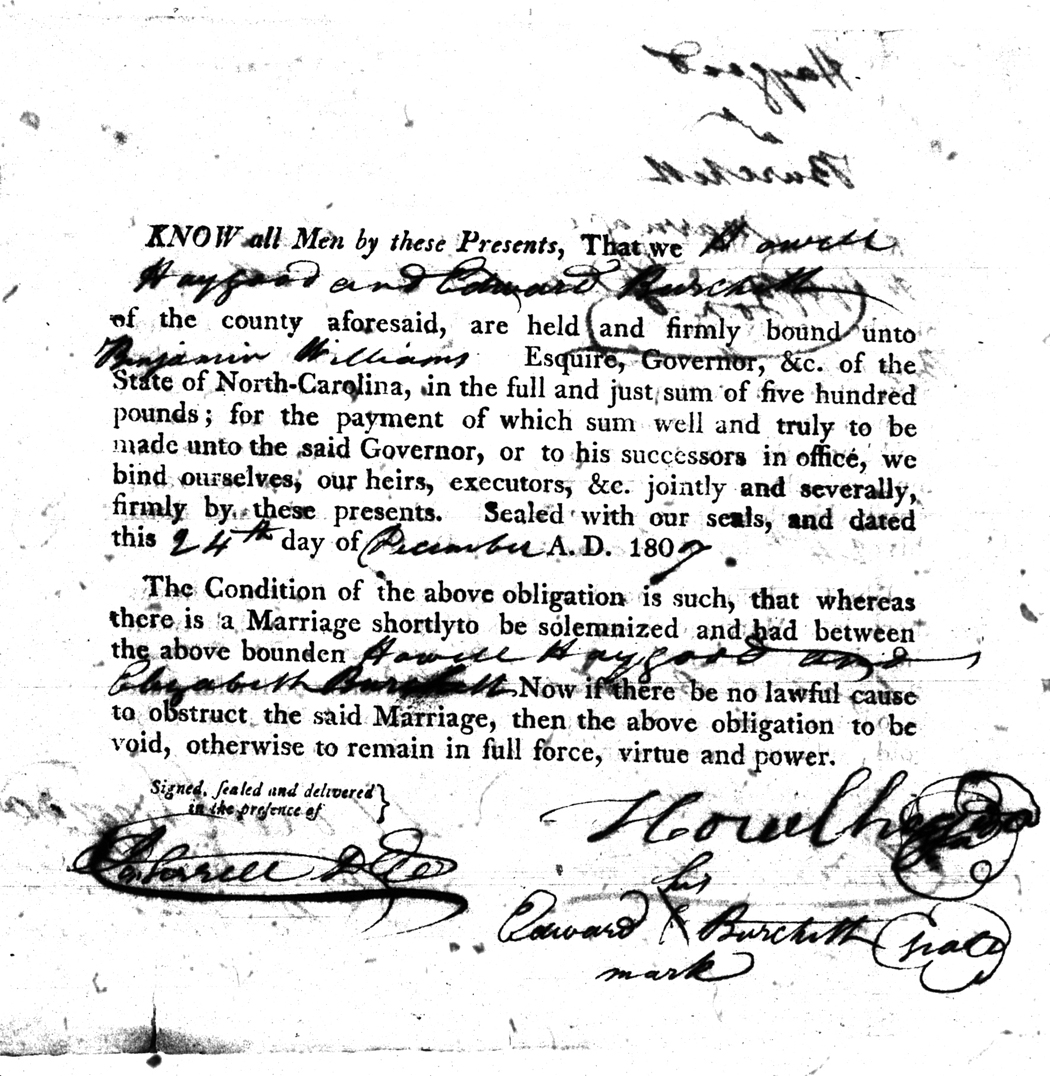 Haygood
Burchett
KNOW all Men by these Presents, That we Howell
Haygood and Edward Burchett
of the county aforesaid, are held and firmly bound unto
Benjamin Williams Esquire, Governor, &c. of the
State of North-Carolina, in the full and just sum of five hundred
pounds; for the payment of which sum well and truly to be
made unto the said Governor, or to his successors in office, we
bind ourselves, our heirs, executors, &c. jointly and severally,
firmly by these presents. Sealed with our seals, and dated
this 24th day of December A. D. 1807.
The Condition of the above obligation is such, that whereas
there is a Marriage shortlyto be solemnized and had between
the above bounden Howell Haygood and
Elizabeth Burchett Now if there be no lawful cause
to obstruct the said Marriage, then the above obligation to be
void, otherwise to remain in full force, virtue and power.
Signed, sealed and delivered
in the presence of
Howell
his
Edward Burchett seal
mark